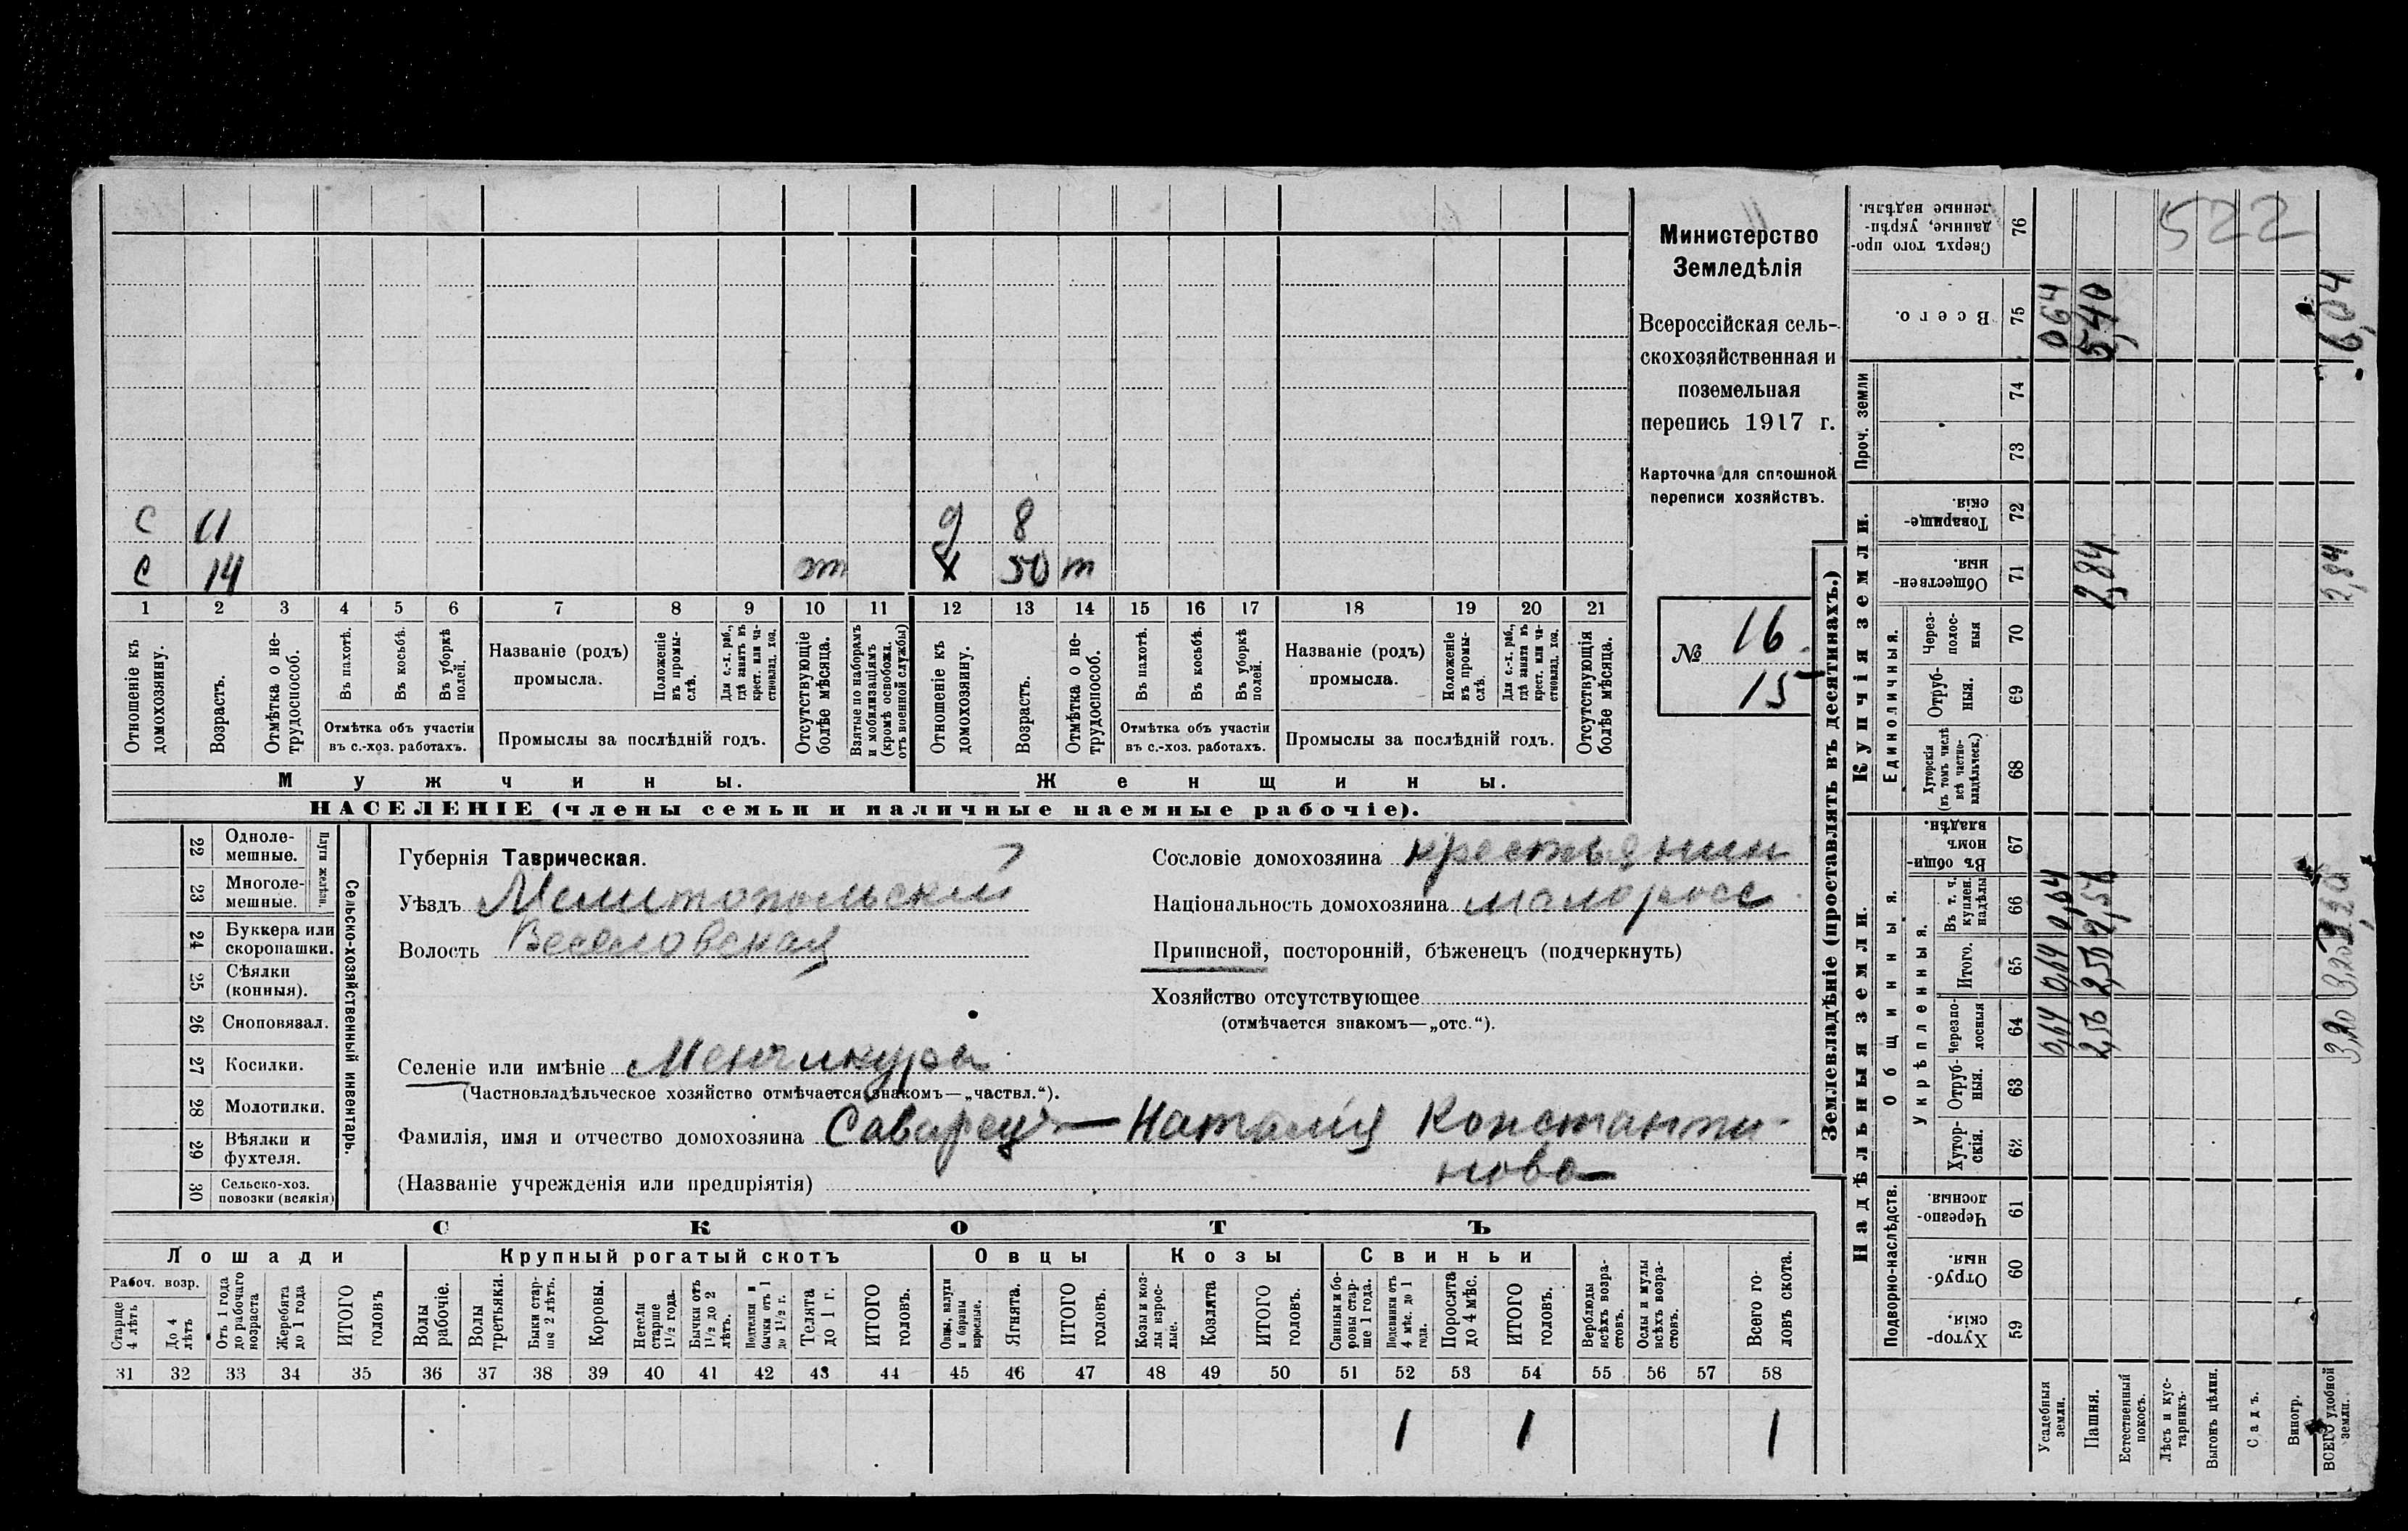 Министерство
Земледѣлія
Всероссійская сель-
скохозяйственная и
поземельная
перепись 1917 г.
Карточка для сплошной
переписи хозяйствъ.
№ 16
15
с 11 д 8
с 14 т х 50 т
1 2 3 4 5 6 7 8 9 10 11 12 13 14 15 16 17 18 19 20 21
Отношеніе къ домохозяину.
Возрастъ.
Отмѣтка о не-трудоспособ.
Въ пахотѣ.
Въ косьбѣ.
Въ уборкѣ полей.
Отмѣтка объ участіи
въ с.-хоз. работахъ.
Названіе (родъ)
промысла.
Положеніе въ промы-слѣ.
Для с.-х. раб., гдѣ занятъ въ крест. или ча-стновлад. хоз.
Промыслы за послѣдній годъ.
Отсутствующіе болѣе мѣсяца.
Взятые по наборамъ и мобилизаціямъ (кромѣ освобожд. отъ военной службы)
Отношеніе къ домохозяину.
Возрастъ.
Отмѣтка о не-трудоспособ.
Въ пахотѣ.
Въ косьбѣ.
Въ уборкѣ полей.
Отмѣтка объ участіи
въ с.-хоз. работахъ.
Названіе (родъ)
промысла.
Положеніе въ промы-слѣ.
Для с.-х. раб., гдѣ занята въ крест. или ча-стновлад. хоз.
Промыслы за послѣдній годъ.
Отсутствующія болѣе мѣсяца.
Мужчины. Женщины.
НАСЕЛЕНІЕ (члены семьи и наличные наемные рабочіе).
22 Одноле-мешные.
23 Многоле-мешные.
Плуги желѣзн.
24 Буккера или скоропашки.
25 Сѣялки (конныя).
26 Сноповязал.
27 Косилки.
28 Молотилки.
29 Вѣялки и фухтеля.
30 Сельско-хоз. повозки (всякія)
Сельско-хозяйственный инвентарь.
Губернія Таврическая.
Уѣздъ Мелитопольский
Волость Веселовская
Селеніе или имѣніе Менчикуры
(Частновладѣльческое хозяйство отмѣчается знакомъ—„частвл.“).
Фамилія, имя и отчество домохозяина Саварец Наталия Константи-
нова
(Названіе учрежденія или предпріятія)
Сословіе домохозяина крестьянин
Національность домохозяина малоросс
Приписной, посторонній, бѣженецъ (подчеркнуть)
Хозяйство отсутствующее
(отмѣчается знакомъ—„отс.“).
СКОТЪ
Лошади Крупный рогатый скотъ Овцы Козы Свиньи
Рабоч. возр.
Старше 4 лѣтъ
До 4 лѣтъ
Отъ 1 года до рабочаго возраста
Жеребята до 1 года
ИТОГО головъ
Волы рабочіе.
Волы третьяки.
Быки стар-ше 2 лѣтъ.
Коровы.
Нетели старше 1½ года.
Бычки отъ 1½ до 2 лѣтъ.
Подтелки и бычки отъ 1 до 1½ г.
Телята до 1 г.
ИТОГО головъ.
Овцы, валухи и бараны взрослые.
Ягнята.
ИТОГО головъ.
Козы и коз-лы взрос-лые.
Козлята
ИТОГО головъ.
Свиньи и бо-ровы стар-ше 1 года.
Подсвинки отъ 4 мѣс. до 1 года.
Поросята до 4 мѣс.
ИТОГО головъ.
Верблюды всѣхъ возра-стовъ.
Ослы и мулы всѣхъ возра-стовъ.
Всего го-ловъ скота.
31 32 33 34 35 36 37 38 39 40 41 42 43 44 45 46 47 48 49 50 51 52 53 54 55 56 57 58
1 1 1
Землевладѣніе (проставлять въ десятинахъ.)
Надѣльныя земли. Купчія земли. Проч. земли
Подворно-наслѣдств.
Общинныя.
Укрѣпленныя.
Единоличныя.
59 Хутор-скія.
60 Отруб-ныя.
61 Черезпо-лосныя.
62 Хутор-скія.
63 Отруб-ныя.
64 Черезпо-лосныя
65 Итого.
66 Въ т. ч. куплен. надѣлы
67 Въ общи-номъ владѣн.
68 Хуторскія (въ томъ числѣ всѣ частно-владѣльческ.)
69 Отруб-ныя.
70 Через-полос-ныя
71 Обществен-ныя.
72 Товарище-скія.
73
74
75 Всего.
76 Сверхъ того про-данные, укрѣп-ленные надѣлы.
Усадебныя земли. 0,64 0,64 0,64 064
Пашня. 2,56 2,56 2,56 2,84 5,40
Естественный покосъ.
Лѣсъ и кус-тарникъ.
Выгонъ цѣлин.
Садъ.
Виногр.
ВСЕГО удобной земли. 3,20 3,20 3,20 2,84 6,04
522